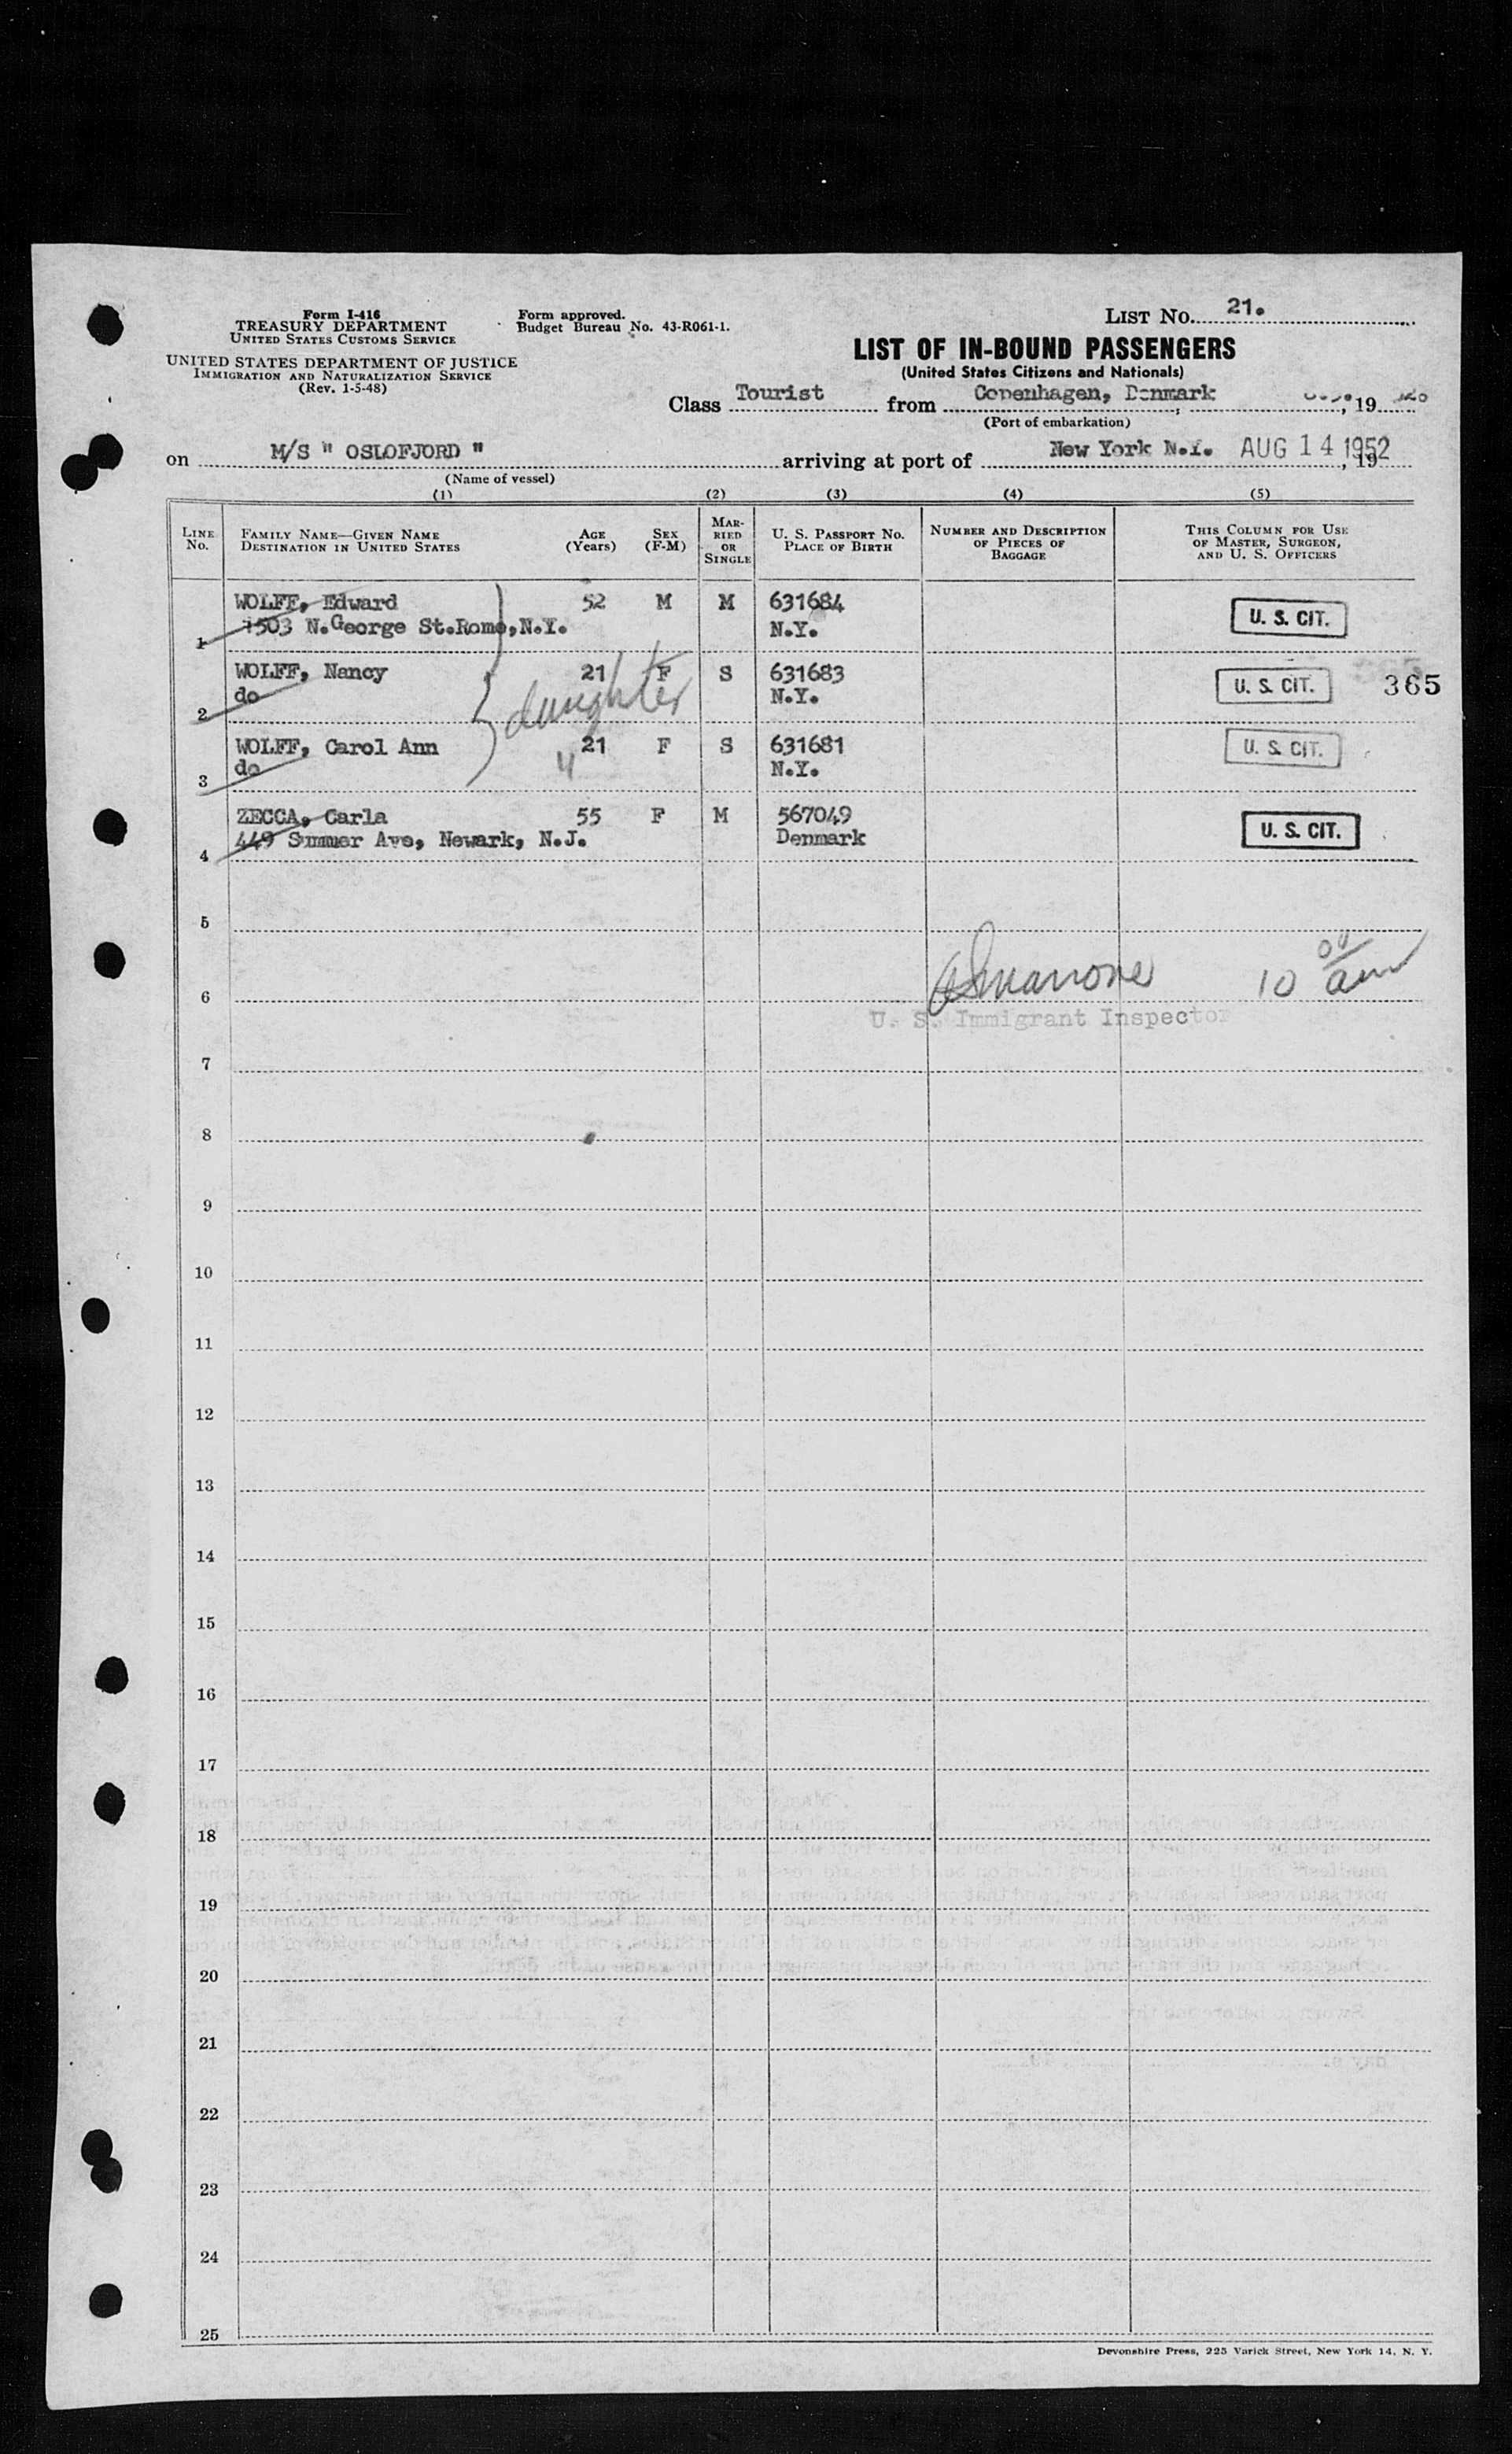 Form I-416
TREASURY DEPARTMENT
UNITED STATES CUSTOMS SERVICE
UNITED STATES DEPARTMENT OF JUSTICE
IMMIGRATION AND NATURALIZATION SERVICE
(Rev. 1-5-48)
Form approved.
Budget Bureau No. 43-R061-1.
LIST NO. 21.
LIST OF IN-BOUND PASSENGERS
(United States Citizens and Nationals)
Class Tourist from Copenhagen, Denmark , 19
(Port of embarkation)
on M/S " OSLOFJORD " arriving at port of New York N.Y. AUG 14 1952 , 19
(Name of vessel)
(1) (2) (3) (4) (5)
LINE NO. FAMILY NAME—GIVEN NAME DESTINATION IN UNITED STATES AGE (Years) SEX (F-M) MARRIED OR SINGLE U. S. PASSPORT NO. PLACE OF BIRTH NUMBER AND DESCRIPTION OF PIECES OF BAGGAGE THIS COLUMN FOR USE OF MASTER, SURGEON, AND U. S. OFFICERS
WOLFF, Edward 52 M M 631684 U. S. CIT.
1 1503 N.George St.Rome,N.Y. N.Y.
WOLFF, Nancy 21 F S 631683 U. S. CIT. 365
2 do daughter N.Y.
WOLFF, Carol Ann 21 F S 631681 U. S. CIT.
3 do 4 N.Y.
ZECCA, Carla 55 F M 567049 U. S. CIT.
4 449 Summer Ave, Newark, N.J. Denmark
5
6 10 00 am
U. S. Immigrant Inspector
7
8
9
10
11
12
13
14
15
16
17
18
19
20
21
22
23
24
25
Devonshire Press, 225 Varick Street, New York 14, N. Y.